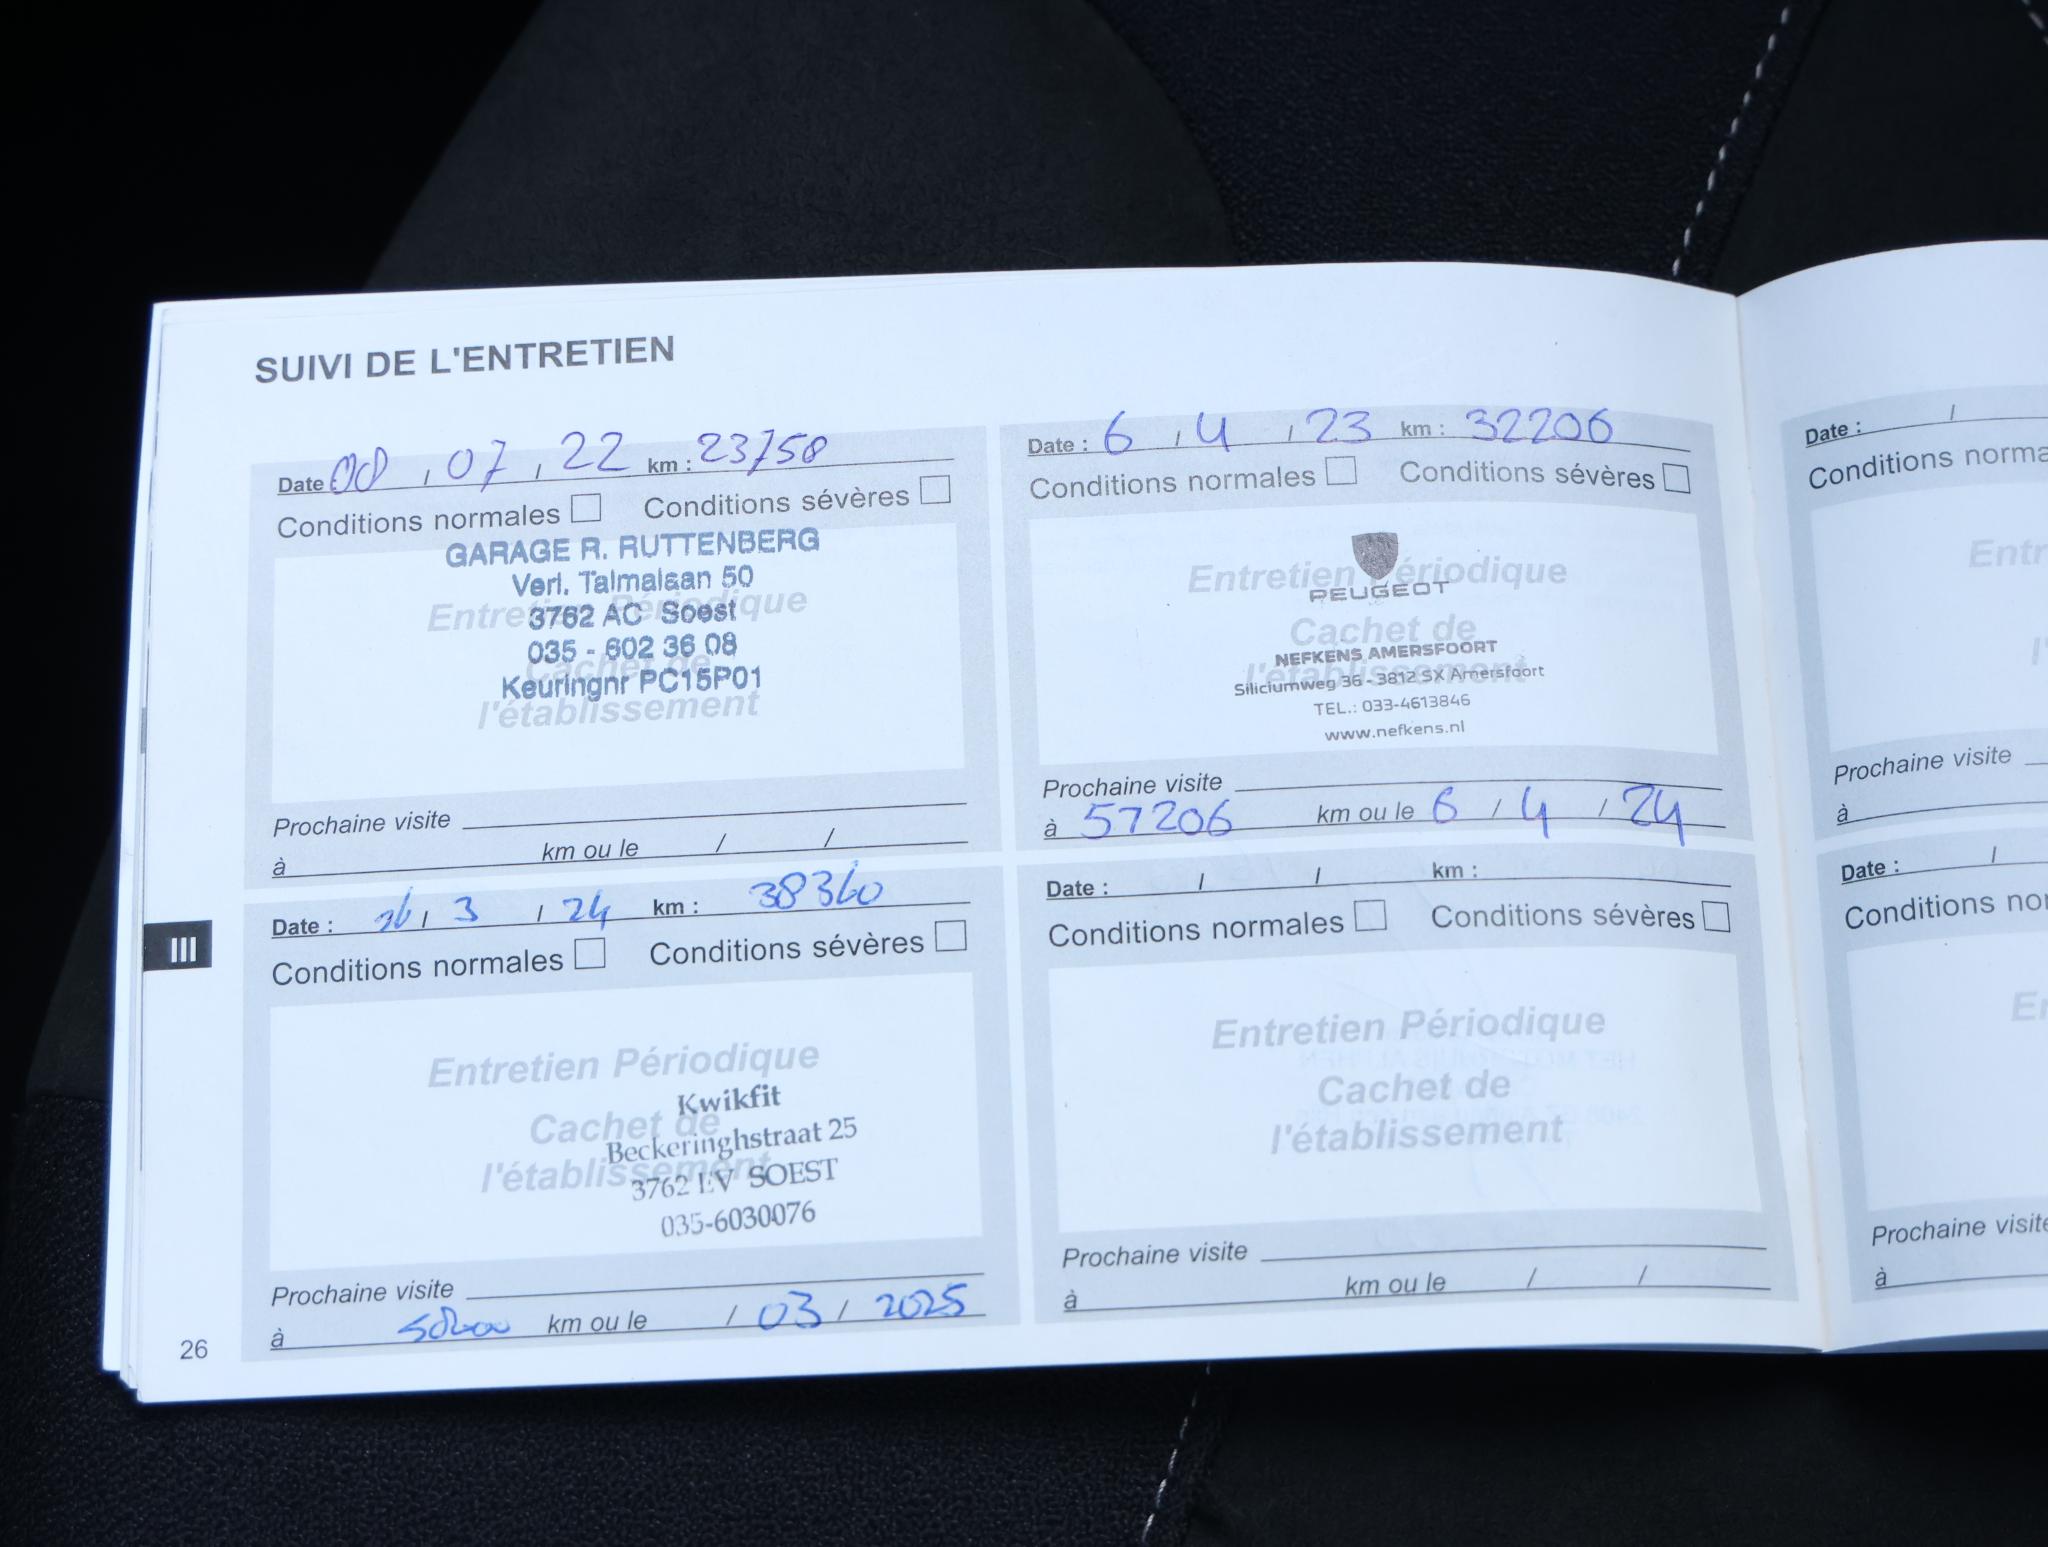 SUIVI DE L'ENTRETIEN
Date : 08 / 07 / 22 km : 23758
Conditions normales Conditions sévères
Entretien Périodique
Cachet de
l'établissement
GARAGE R. RUTTENBERG
Verl. Talmalaan 50
3762 AC Soest
035 - 602 36 08
Keuringnr PC15P01
Prochaine visite
à km ou le / /
Date : 6 / 4 / 23 km : 32206
Conditions normales Conditions sévères
Entretien Périodique
Cachet de
l'établissement
PEUGEOT
NEFKENS AMERSFOORT
Siliciumweg 36 - 3812 SX Amersfoort
TEL.: 033-4613846
www.nefkens.nl
Prochaine visite
à 57206 km ou le 6 / 4 / 24
Date : 26 / 3 / 24 km : 38360
Conditions normales Conditions sévères
Entretien Périodique
Cachet de
l'établissement
Kwikfit
Beckeringhstraat 25
3762 EV SOEST
035-6030076
Prochaine visite
à km ou le / 03 / 2025
Date : / / km :
Conditions normales Conditions sévères
Entretien Périodique
Cachet de
l'établissement
Prochaine visite
à km ou le / /
III
26
Date : /
Conditions
Prochaine visite
à
Date : /
Conditions
Prochaine
à